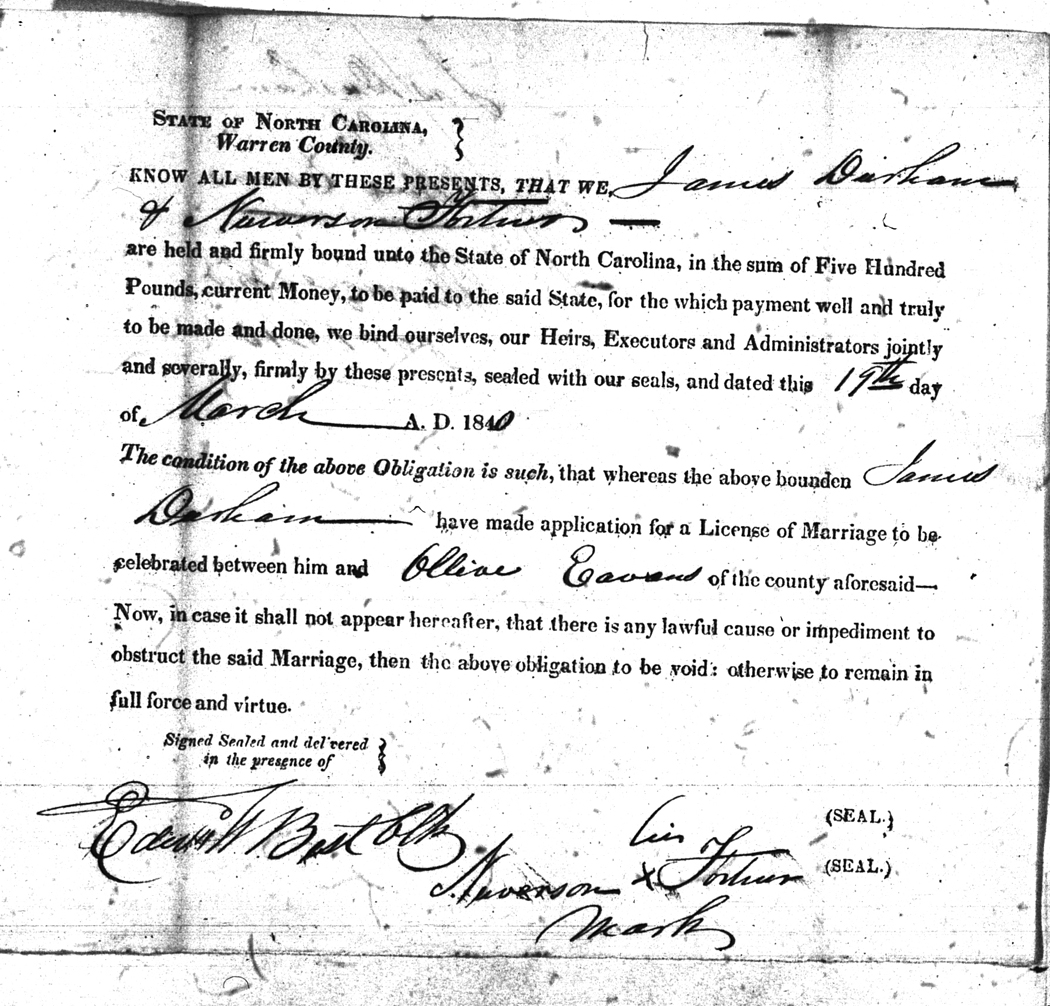 STATE OF NORTH CAROLINA,
Warren County.
KNOW ALL MEN BY THESE PRESENTS, THAT WE, James Durham
& Nuverson
are held and firmly bound unto the State of North Carolina, in the sum of Five Hundred
Pounds, current Money, to be paid to the said State, for the which payment well and truly
to be made and done, we bind ourselves, our Heirs, Executors and Administrators jointly
and severally, firmly by these presents, sealed with our seals, and dated this 19th day
of March A. D. 1840
The condition of the above Obligation is such, that whereas the above bounden James
Durham have made application for a License of Marriage to be
celebrated between him and Ollive Eavans of the county aforesaid—
Now, in case it shall not appear hereafter, that there is any lawful cause or impediment to
obstruct the said Marriage, then the above obligation to be void: otherwise to remain in
full force and virtue.
Signed Sealed and delivered
in the presence of
(SEAL.)
Edw W Best Clk his
Nuverson x (SEAL.)
mark